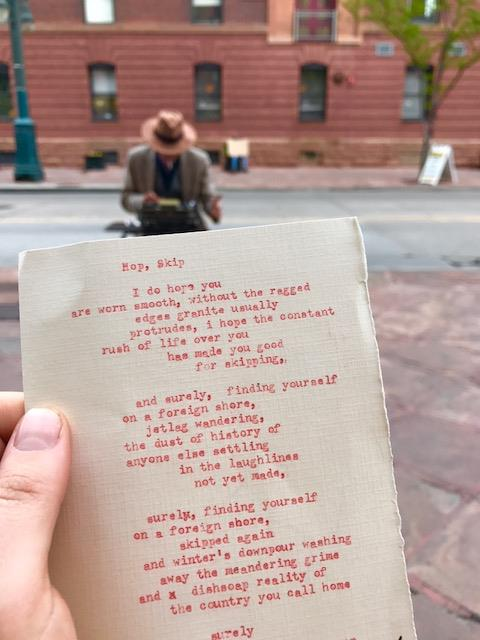 Hop, Skip
I do hope you
are worn smooth, without the ragged
edges granite usually
protrudes, i hope the constant
rush of life over you
has made you good
for skipping,
and surely, finding yourself
on a foreign shore,
jetlag wandering,
the dust of history of
anyone else settling
in the laughlines
not yet made,
surely, finding yourself
on a foreign shore,
skipped again
and winter's downpour washing
away the meandering grime
and x dishsoap reality of
the country you call home
surely